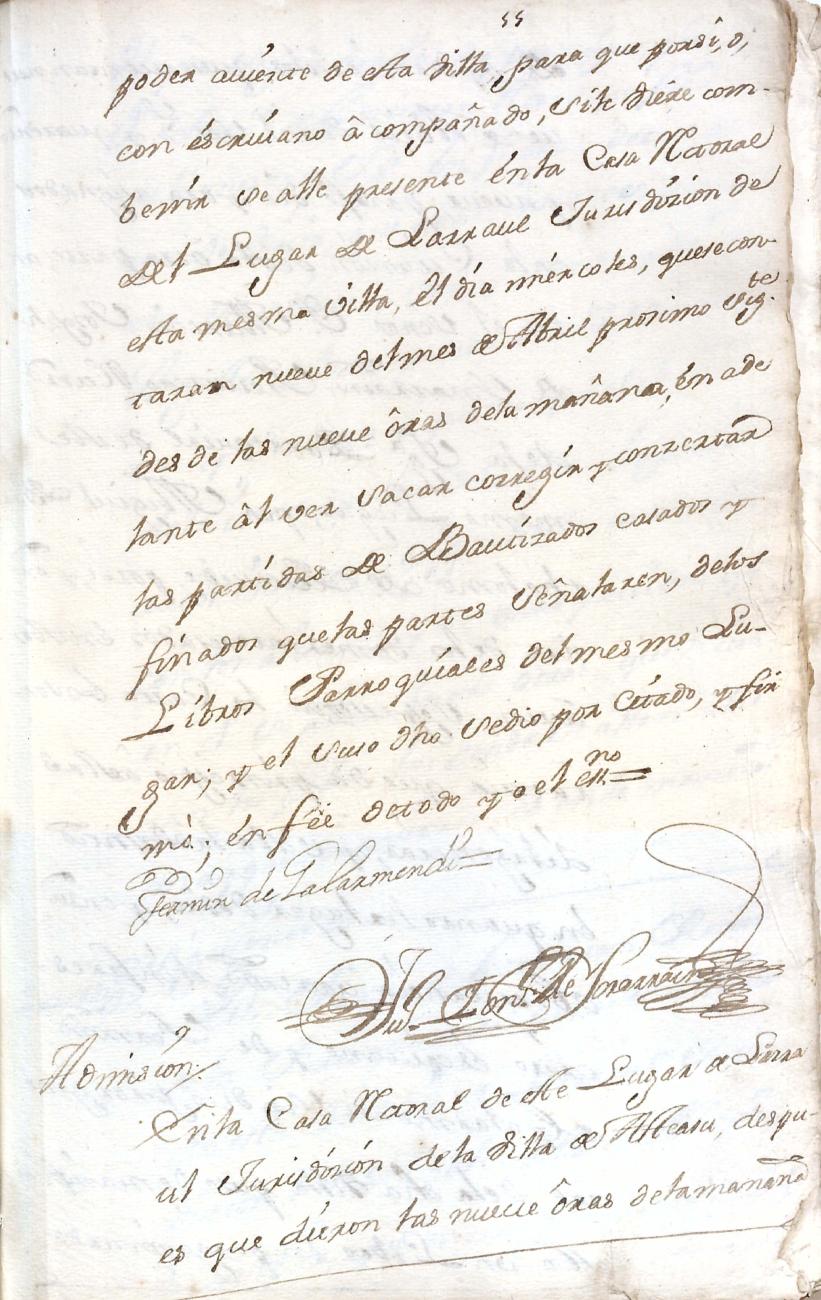 55
poder aviente de esta Villa para que por si, o,
con éscriuano âcompañado, si le diere com-
benir se alle presente énla Casa Rectoral
del Lugar de Larraul Jurisdizion de
esta mesma Villa, él día miércoles, que se con-
taran nueve del mes de Abril prosimo sigte
desde las nueve ôras dela mañana, én ade
lante âl ver sacar corregir y conzertar
las partidas de Bautizados casados y
finados que las partes señalaren, delos
Libros Parroquiales del mesmo Lu-
gar; y el suso dho se dio por Citado, y fir
mò; én fèe de todo yo el essno =
Fermin de Lalarmendi =
Admision
Enla Casa Rectoral de este Lugar de Larra
ul Jurisdizión de la Villa de Asteasu, despu-
es que diéron las nueve ôras dela mañana